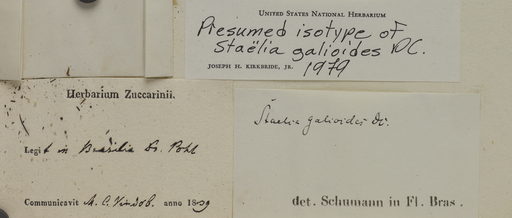 UNITED STATES NATIONAL HERBARIUM
Presumed isotype of
Staëlia galioides DC.
JOSEPH H. KIRKBRIDE, JR. 1979
Herbarium Zuccarinii.
Legit in Brasilia Dr. Pohl
Communicavit M. C. Vindob. anno 1839
Staelia galioides DC.
det. Schumann in Fl. Bras.